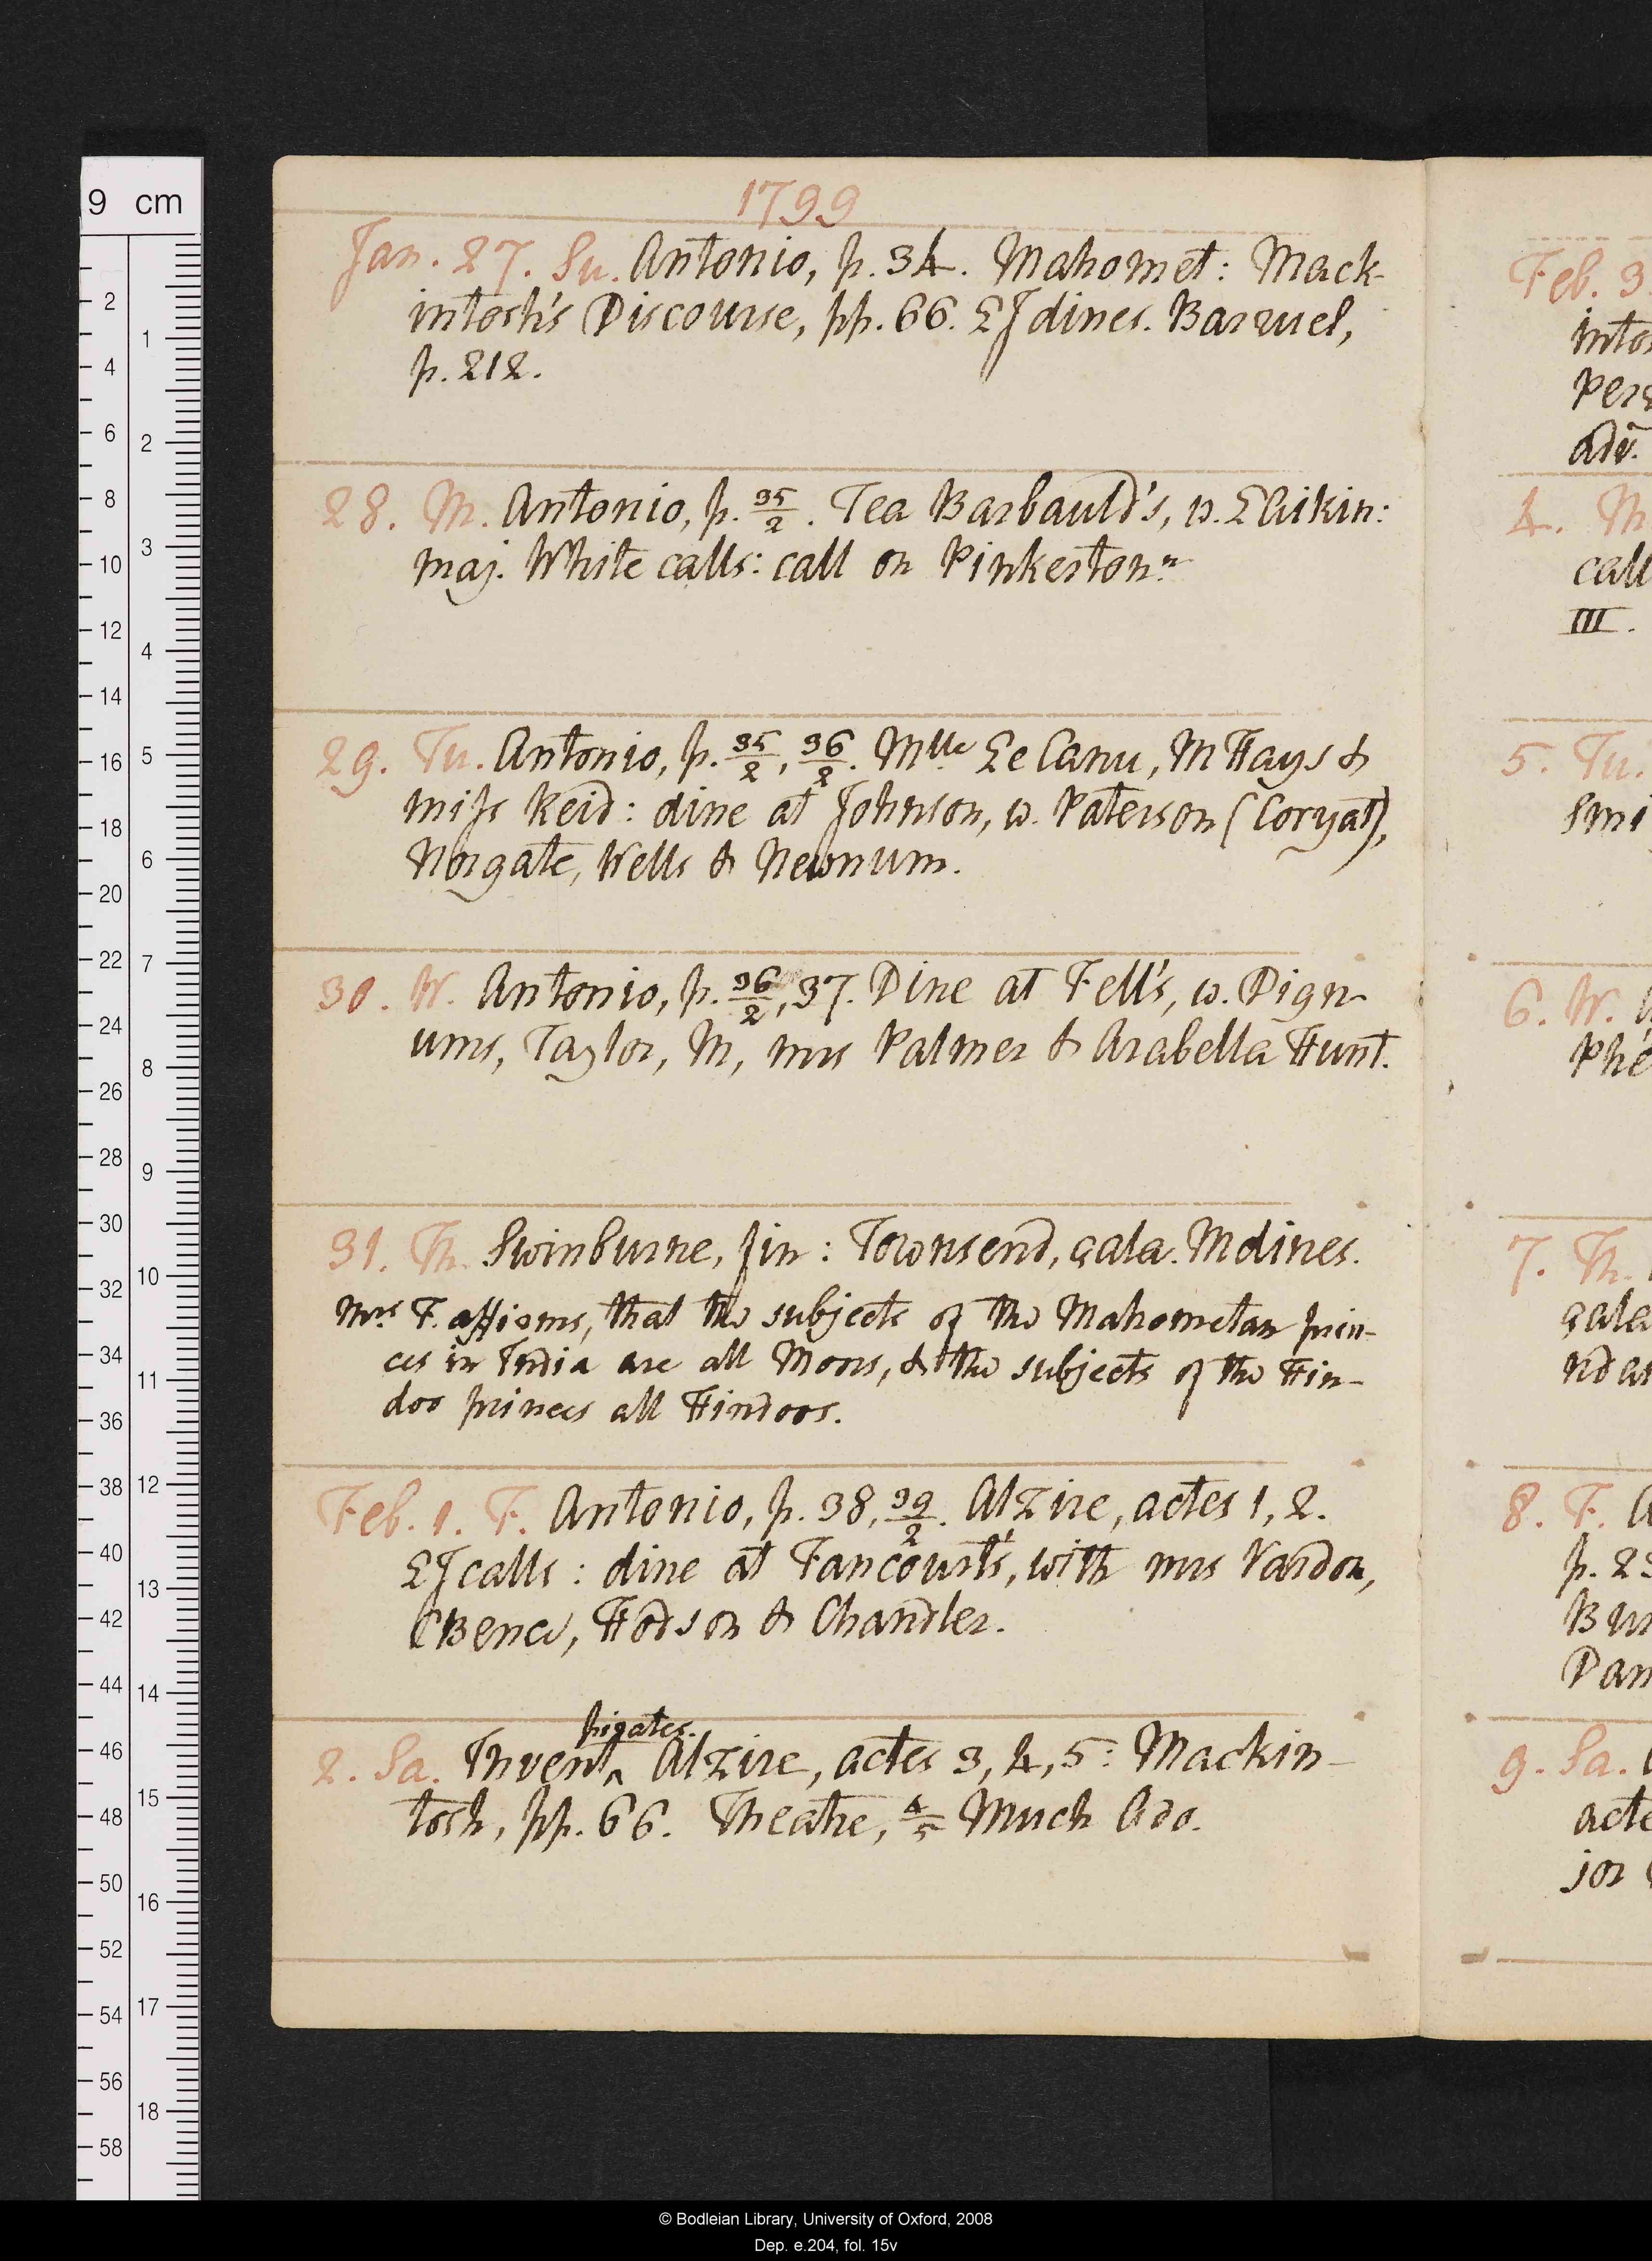 1799
Jan. 27. Su. Antonio, p. 34. Mahomet: Mack-
intosh's Discourse, pp. 66. LJ dines. Barruel,
p. 212.
28. M. Antonio, p. 35/2. Tea Barbauld's, n. L Aikin:
maj. White calls: call on Pinkerton n
29. Tu. Antonio, p. 35/2, 36/2. Mlle Le Canu, M Hays &
miss Reid: dine at Johnson, w. Paterson (Coryat),
Norgate, Wells & Newnum.
30. W. Antonio, p. 36/2, 37. Dine at Fell's, w. Dign-
ums, Taylor, M, mrs Palmer & Arabella Hunt.
31. Th. Swinburne, fin: Townsend, çala. M dines.
Mrs F. affirms, that the subjects of the Mahometan prin-
ces in India are all Moors, & the subjects of the Hin-
doo princes all Hindoos.
Feb. 1. F. Antonio, p. 38, 39/2. Alzire, actes 1, 2.
LJ calls: dine at Fancourt's, with mrs Vardon,
E Bence, Hodson & Chandler.
pirates.
2. Sa. Invent ‸ Alzire, actes 3, 4, 5: Mackin-
tosh, pp. 66. Theatre, 4/5 Much Ado.
Feb. 3
intos
Pers
adv.
4. M
call
III.
5. Tu.
Smi
6. W. A
Phe
7. Th.
çala
nd at
8. F. A
p. 23
Bur
Dan
9. Sa.
acte
jor
9 cm
2
4
6
8
10
12
14
16
18
20
22
24
26
28
30
32
34
36
38
40
42
44
46
48
50
52
54
56
58
1
2
3
4
5
6
7
8
9
10
11
12
13
14
15
16
17
18
© Bodleian Library, University of Oxford, 2008
Dep. e.204, fol. 15v